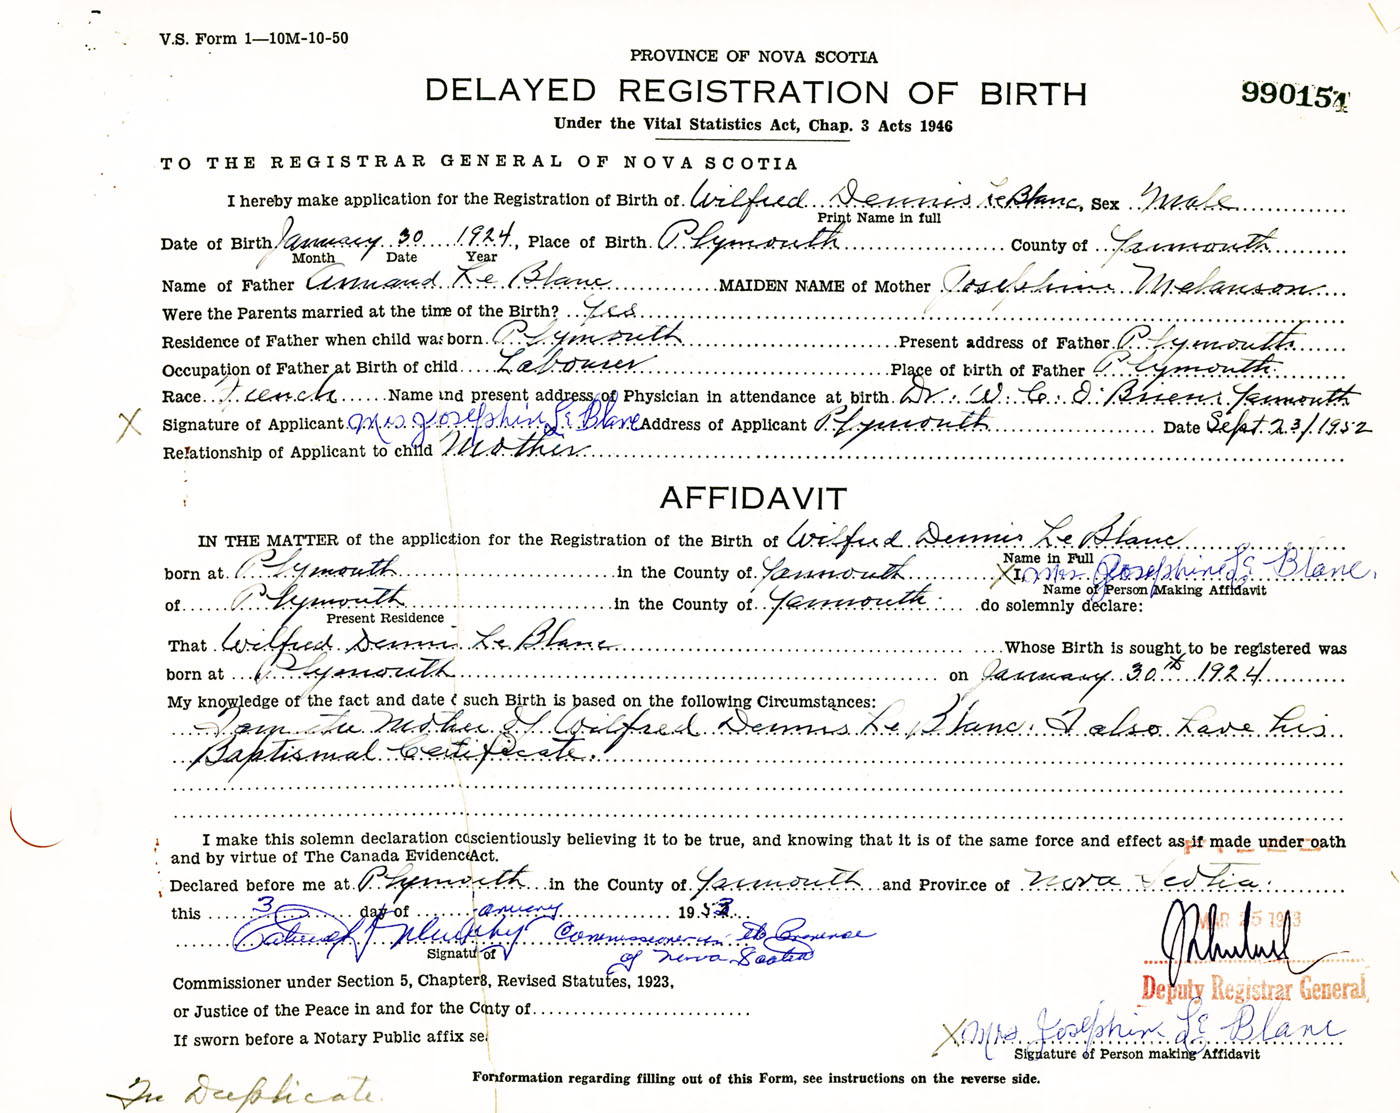 V.S. Form 1—10M-10-50
PROVINCE OF NOVA SCOTIA
DELAYED REGISTRATION OF BIRTH
990154
Under the Vital Statistics Act, Chap. 3 Acts 1946
TO THE REGISTRAR GENERAL OF NOVA SCOTIA
I hereby make application for the Registration of Birth of Wilfred Dennis Le Blanc, Sex Male
Print Name in full
Date of Birth January 30 1924, Place of Birth Plymouth County of Yarmouth
Month Date Year
Name of Father Armand Le Blanc MAIDEN NAME of Mother Josephine Melanson
Were the Parents married at the time of the Birth? Yes
Residence of Father when child was born Plymouth Present address of Father Plymouth
Occupation of Father at Birth of child Labourer Place of birth of Father Plymouth
Race French Name and present address of Physician in attendance at birth Dr. W. C. O'Brien Yarmouth
X Signature of Applicant Mrs Josephine Le Blanc Address of Applicant Plymouth Date Sept. 23/1952
Relationship of Applicant to child Mother
AFFIDAVIT
IN THE MATTER of the application for the Registration of the Birth of Wilfred Dennis Le Blanc
Name in Full
born at Plymouth in the County of Yarmouth X I, Mrs Josephine Le Blanc,
Name of Person Making Affidavit
of Plymouth in the County of Yarmouth do solemnly declare:
Present Residence
That Wilfred Dennis Le Blanc Whose Birth is sought to be registered was
born at Plymouth on January 30th 1924
My knowledge of the fact and date f such Birth is based on the following Circumstances:
I am the Mother of Wilfred Dennis Le Blanc. I also have his
Baptismal Certificate.
I make this solemn declaration coscientiously believing it to be true, and knowing that it is of the same force and effect as if made under oath
and by virtue of The Canada Evidence Act.
Declared before me at Plymouth in the County of Yarmouth and Province of Nova Scotia.
this 3 day of January 1953
MAR 25
Commissioner in the Province
of Nova Scotia
Signatur of
Commissioner under Section 5, Chapter 8, Revised Statutes, 1923,
Deputy Registrar General
or Justice of the Peace in and for the Cnty of
X Mrs Josephine Le Blanc
If sworn before a Notary Public affix se
Signature of Person making Affidavit
For nformation regarding filling out of this Form, see instructions on the reverse side.
In Duplicate.